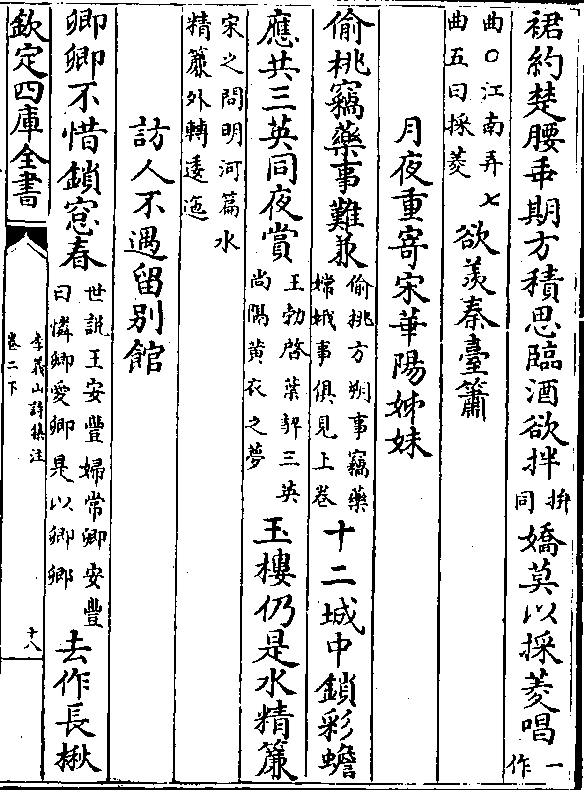 裙約楚腰乖期方積思臨酒欲拌拚同嬌莫以採菱唱一作
曲〇江南弄七曲五曰採菱欲羡秦臺簫
月夜重寄宋華陽姊妹
偷桃竊藥事難兼偷桃方朔事竊藥嫦娥事俱見上卷十二城中鎖彩蟾
應共三英同夜賞王勃啓葉契三英尚隔黃衣之夢玉樓仍是水精簾
宋之問明河篇水精簾外轉逶迤
訪人不遇留別館
卿卿不惜鎖窓春世說王安豐婦常卿安豐曰憐卿愛卿是以卿卿去作長楸
欽定四庫全書
李義山詩集注
卷二下
十八